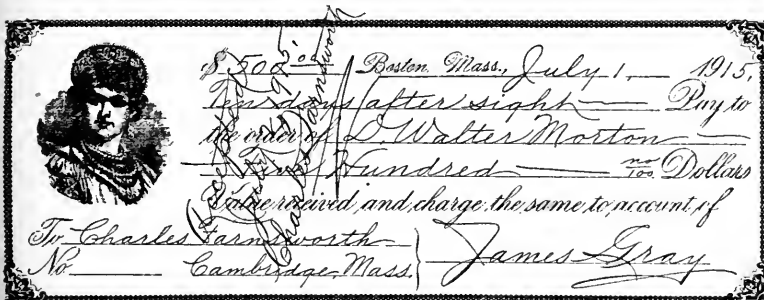 $500.00 Boston, Mass., July 1, 1915.
Ten days after sight Pay to
the order of D. Walter Morton
Hundred no/100 Dollars
Value received and charge the same to account of
To Charles Farnsworth
No Cambridge, Mass. James Gray
Accepted
July 1915
Charles Farnsworth